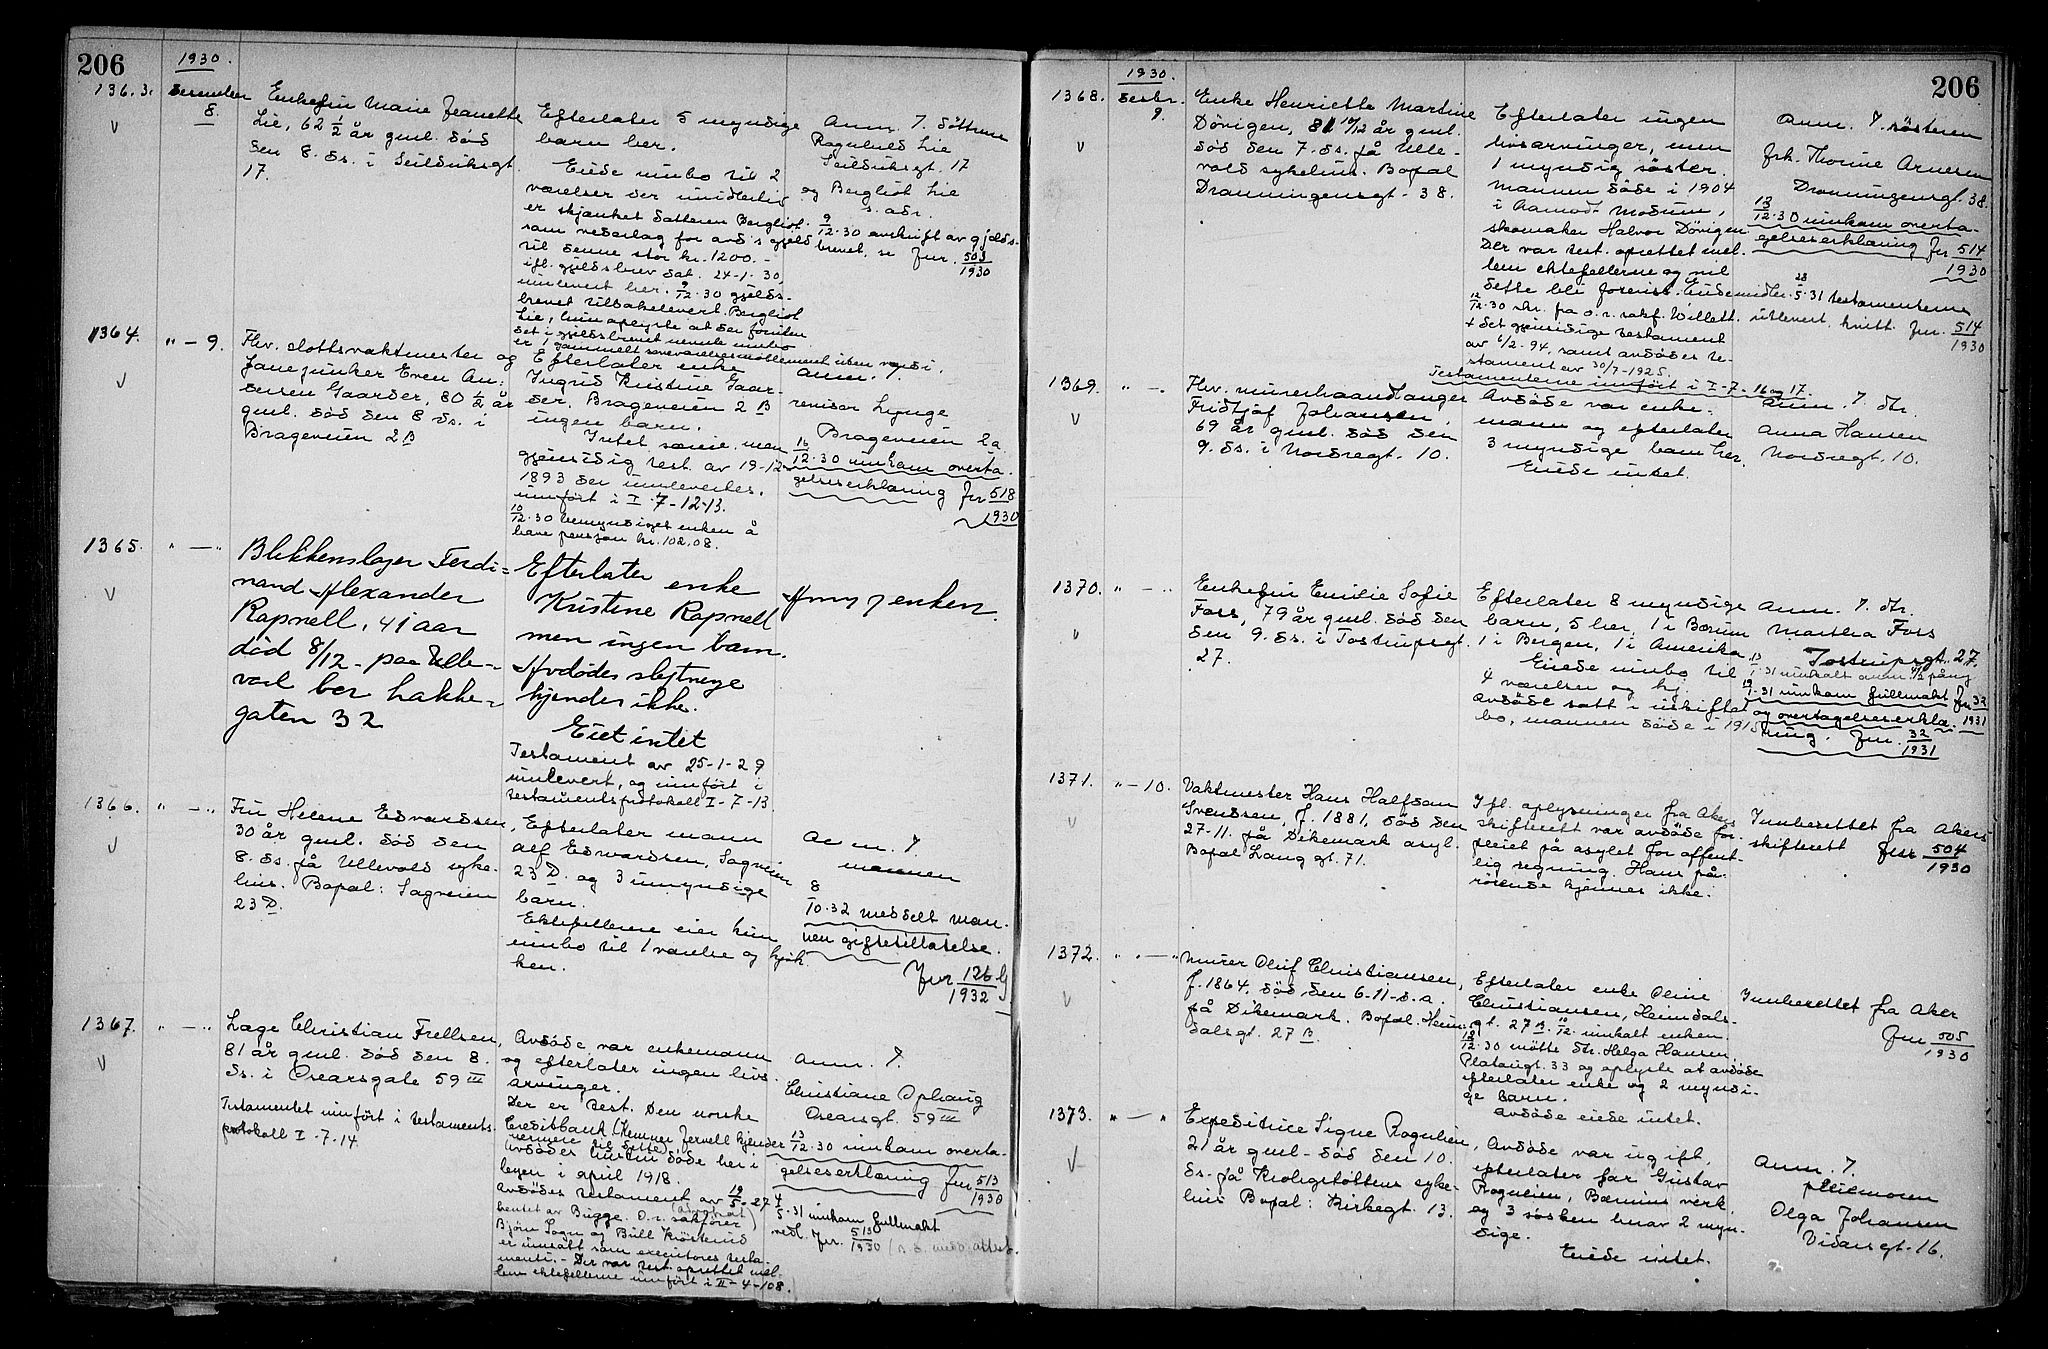 206
1930.
1363.
Desember
8.
Enkefru Marie Jeanette
Lie, 62 1/2 år gml. död
den 8. ds. i Seilduksgt.
17.
Efterlater 5 myndige
barn her.
Eiede innbo til 2
værelser der imidlertid
er skjænket datteren Bergliot
som vederlag for avd's gjeld
til denne stor kr. 1200.-
ifl. gjeldsbrev dat. 24-1-30,
innlevert her. 9/12.30 gjelds-
brevet tilbakelevert Bergliot
Lie, hun oplyste at der foruten
det i gjeldsbrevet nevnte innbo
er 1 gammelt soveværelsesmöblement uten verdi.
Anm. 7. Döttrene
Ragnhild Lie
Seilduksgt. 17
og Bergliot Lie
s. adr.
9/12.30 avskrift av gjelds-
brevet, se Jnr. 503/1930
1364.
" - 9.
Fhv. slottsvaktmester og
fanejunker Even An-
dersen Gaarder, 80 1/2 år
gml. död den 8 ds. i
Brageveien 2 B
Efterlater enke
Ingrid Kristine Gaar-
der, Brageveien 2 B
ingen barn.
Intet særeie, men
gjensidig test. av 19-12-
1893 der innleveres.
innfört i I-7-12-13.
10/12.30 bemyndiget enken å
heve pensjon kr. 102,08.
Anm. 7.
revisor Lynge
Brageveien 2a
16/12.30 innkom overta-
gelseserklæring Jnr 518/1930
1365.
" - "
Blikkenslager Ferdi-
nand Alexander
Rapnell, 41 aar
död 8/12 - paa Ulle-
vaal bor Hakke-
gaten 32
Efterlater enke
Kristine Rapnell
men ingen barn.
Avdödes slegtninge
kjendes ikke.
Eiet intet
Testament av 25-1-29
innlevert, og innfört i
testamentsprotokoll I-7-13.
Anm 7 enken.
1366.
" - "
Fru Helene Edvardsen,
30 år gml. död den
8. ds. på Ullevold syke-
hus. Bopæl: Sagveien
23 D.
Efterlater mann
Alf Edvardsen, Sagveien
23 D. og 3 umyndige
barn.
Ektefellene eier kun
innbo til 1 værelse og kjök-
ken.
Anm. 7
mannen
8/10.32 meddelt man-
nen giftetillatelse.
Jnr 126 G/1932
1367.
" - "
Læge Christian Frellsen,
81 år gml. död den 8.
ds. i Oscarsgate 59 III
Testamentet innfört i testaments-
protokoll I-7-14.
Avdöde var enkemann
og efterlater ingen livs-
arvinger.
Der er test. Den norske
Creditbank (Kemner Jervell kjender
nermere til dette)
Avdödes hustru döde her i
byen i april 1918.
Avdödes testament av 19/5-27
hentet av Bugge. O.r. sakförer (advokat)
Björn Sogn og Bull
er innsatt som executores testa-
menti.- Der var test. oprettet mel-
lem ektefellerne innfört i II-4-108.
Anm. 7.
Christiane Ophaug
Oscarsgt. 59 III
13/12.30 innkom overta-
gelseserklæring Jnr 513/1930
4/5.31 innkom fullmakt
vedl. Jnr. 513/1930
206
1930.
1368.
Desbr.
9.
Enke Henriette Martine
Dövigen, 81 10/12 år gml.
död den 7. ds. på Ulle-
vold sykehus. Bopæl
Dronningensgt. 38.
Efterlater ingen
livsarvinger, men
1 myndig söster.
Mannen döde i 1904
i Aamodt Modum,
skomaker Halvor Dövigen
Der var test. oprettet mel-
lem ektefellerne og vil
dette bli forevist. Eiede midler.
12/12.30 skr. fra o.r. sakf. Willett.
+ det gjensidige testament
av 6/2-94, samt avdödes te-
stament av 30/7-1925.
Testamenterne innfört i I-7-16 og 17.
Anm. 7. søsteren
frk. Thorine Arnesen
Dronningensgt. 38.
13/12.30 innkom overta-
gelseserklæring Jnr 514/1930
28/5.31 testamenterne
utlevert. kvitt. Jnr. 514/1930
1369.
" - "
Fhv. murerhaandlanger
Fridtjof Johansen,
69 år gml. död den
9. ds. i Nordregt. 10.
Avdöde var enke-
mann og efterlater
3 myndige barn her.
Eiede intet.
Anm. 7. dtr.
Anna Hansen
Nordregt. 10.
1370.
" - "
Enkefru Emilie Sofie
Foss, 79 år gml. död den
den 9. ds. i Tostrupsgt.
27.
Efterlater 8 myndige
barn, 5 her, 1 i Bærum
1 i Bergen, 1 i Amerika.
Eiede innbo til
4 værelser og kj.
Avdöde satt i uskiftet
bo, mannen döde i 1915
Anm. 7. dtr.
Martha Foss
Tostrupsgt. 27.
13/1.31 innkalt anm. på ny
19/1.31 innkom fullmakt Jnr 32/1931
og overtagelseserklæ-
ring. Jnr. 32/1931
1371.
" - 10.
Vaktmester Hans Halfdan
Svendsen, f. 1881, död den
27-11. på Dikemark asyl.
Bopæl Lang gt. 71.
Ifl. oplysninger fra Akers
skifterett var avdöde for-
pleiet på asylet for offent-
lig regning. Hans på-
rörende kjennes ikke.
Innberettet fra Akers
skifterett Jnr 504/1930
1372.
" - "
Murer Oluf Christiansen,
f. 1864, död den 6-11-d.a.
på Dikemark. Bopæl. Heim-
dalsgt. 27 B.
Efterlater enke Oline
Christiansen, Heimdals-
gt. 27 B. 10/12. innkalt enken.
12/12.30 mötte dtr. Helga Hansen,
Plataugt. 33 og oplyste at avdöde
efterlater enke og 2 myndi-
ge barn.
Avdöde eiede intet.
Innberettet fra Aker
Jnr 505/1930
1373.
" - "
Expeditrice Signe Rognlien,
21 år gml. död den 10.
ds. på Krohgstöttens syke-
hus Bopæl: Kirkegt. 13.
Avdöde var ugift,
efterlater far Gustav
Rognlien, Bærums verk,
og 3 søsken hvorav 2 myn-
dige.
Eiede intet.
Anm. 7.
pleiemoren
Olga Johansen
Vidarsgt. 16.